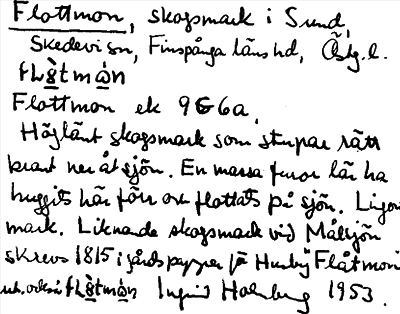 Flottmon, skogsmark i Sund,
Skedevi sn, Finspånga läns hd, Östg. l.
fLo̲tmo̲n
Flottmon ek 9G6a,
Höglänt skogsmark som stupar rätt
brant ner åt sjön. En massa furor lär ha
huggits här förr och flottats på sjön. Lingon
mark. Liknande skogsmark vid Målsjön
skrevs 1815 i gårdspapper på Husby Flåtmon
ut. också fLo̲tmo̲n Ingrid Holmberg 1953.